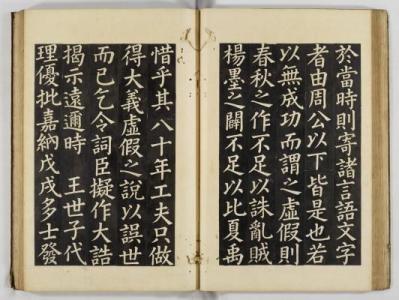 於當時則寄諸言語文字
者由周公以下皆是也若
以無成功而謂之虛假則
春秋之作不足以誅亂賊
楊墨之闢不足以比夏禹
惜乎其八十年工夫只做
得大義虛假之說以誤世
而已乞令詞臣擬作大誥
揭示遠邇時　王世子代
理優批嘉納戊戌多士發